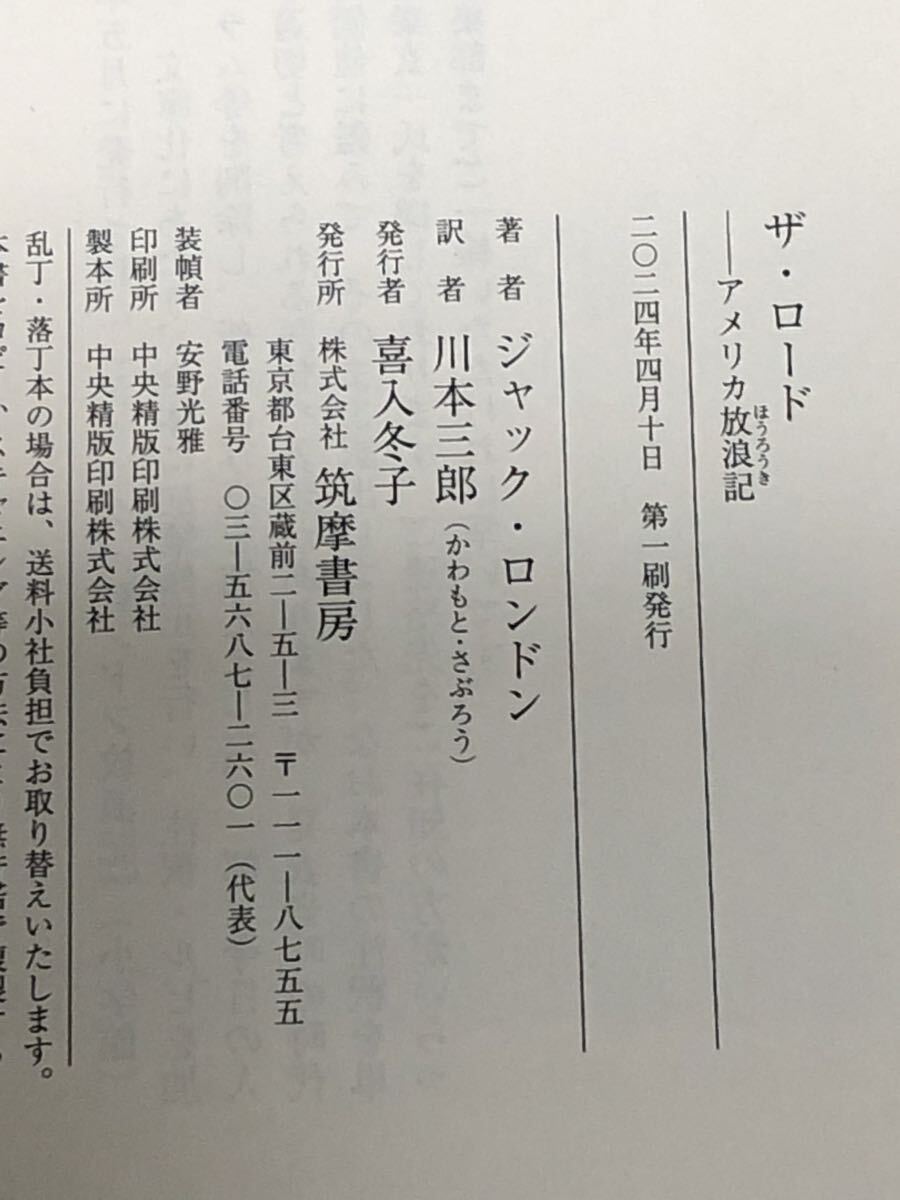 ザ・ロード
――アメリカ放浪記
ほうろうき
二〇二四年四月十日　第一刷発行
著　者　ジャック・ロンドン
訳　者　川本三郎（かわもと・さぶろう）
発行者　喜入冬子
発行所　株式会社　筑摩書房
東京都台東区蔵前二―五―三　〒一一一―八七五五
電話番号　〇三―五六八七―二六〇一（代表）
装幀者　安野光雅
印刷所　中央精版印刷株式会社
製本所　中央精版印刷株式会社
乱丁・落丁本の場合は、送料小社負担でお取り替えいたします。